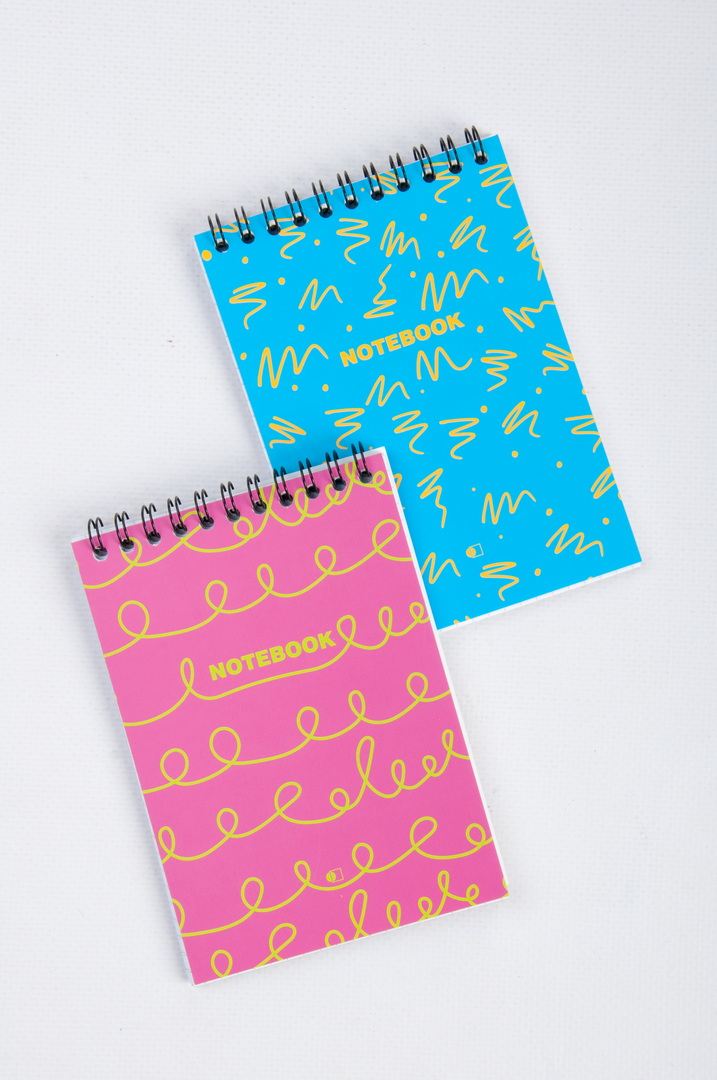 NOTEBOOK
NOTEBOOK